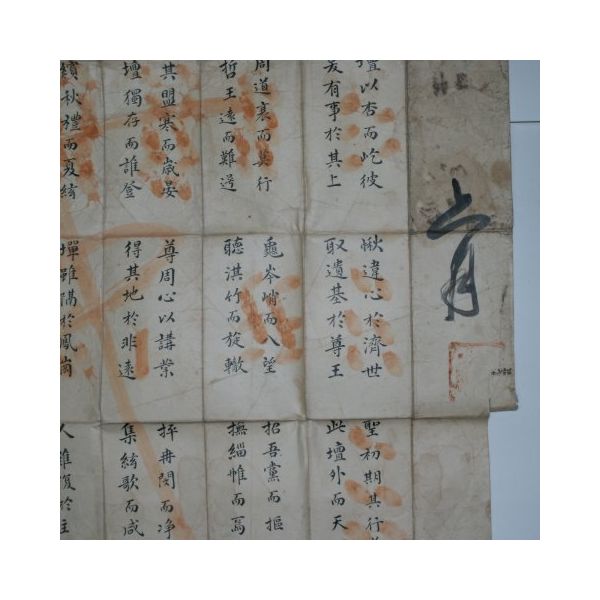 壇以杏而屹彼
爰有事於其上
周道衰而莫行
哲王遠而難逆
其盟寒而歲晏
壇獨存而誰登
秋禮而夏絃
愀違心於濟世
取遺基於尊王
龜岑峭而入望
聽淇竹而旋轍
尊周心以講業
得其地於非遠
墠雖隔於鳳崗
聖初期其行
此壇外而天
招吾黨而摳
撫緇帷而寫
冉閔而净
集絃歌而咸
人雖復於主